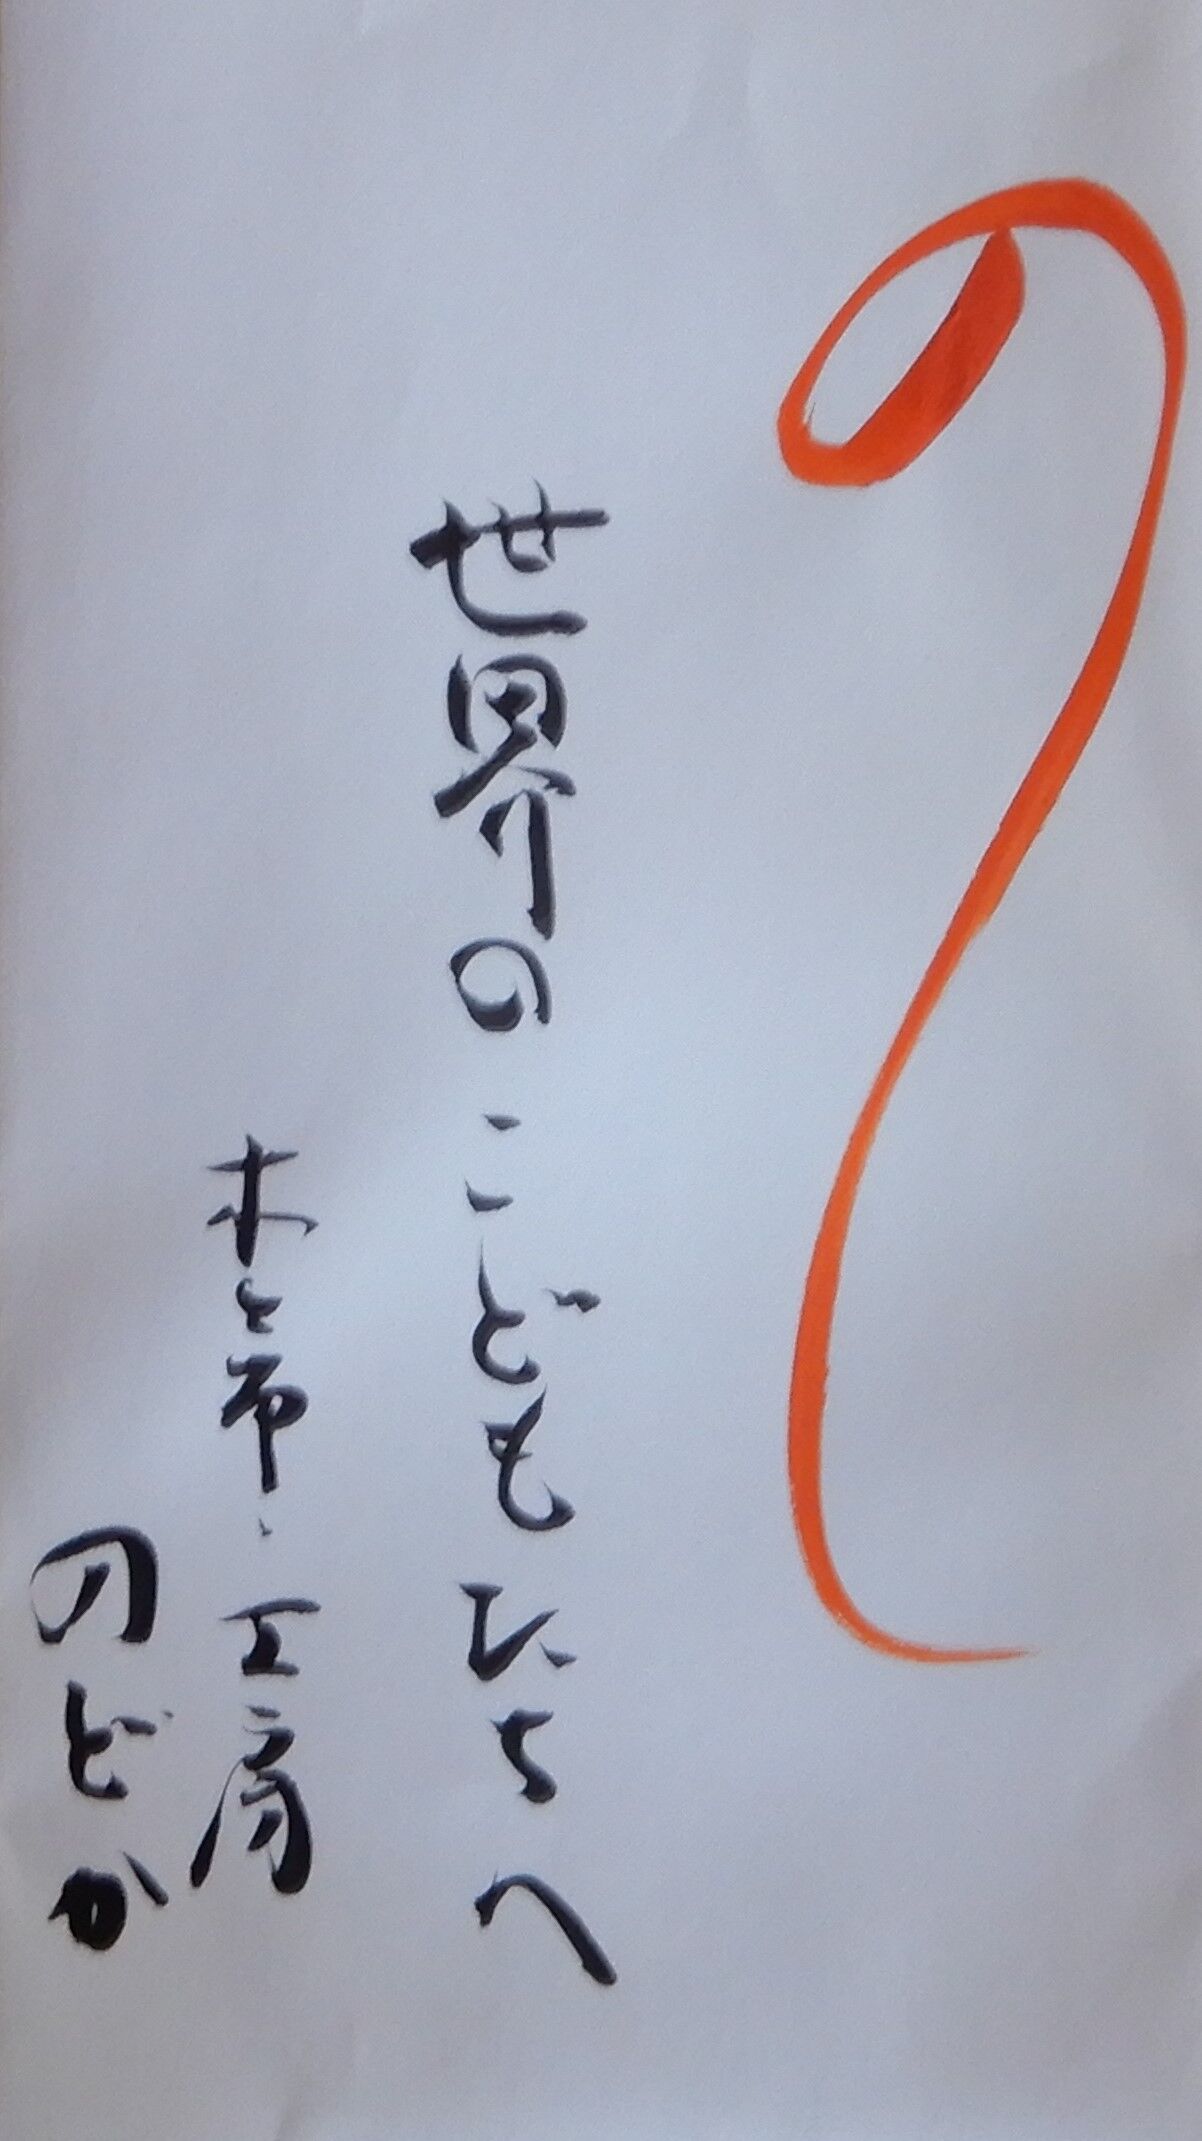 の
世界のこどもたちへ
木と布・工房
のどか